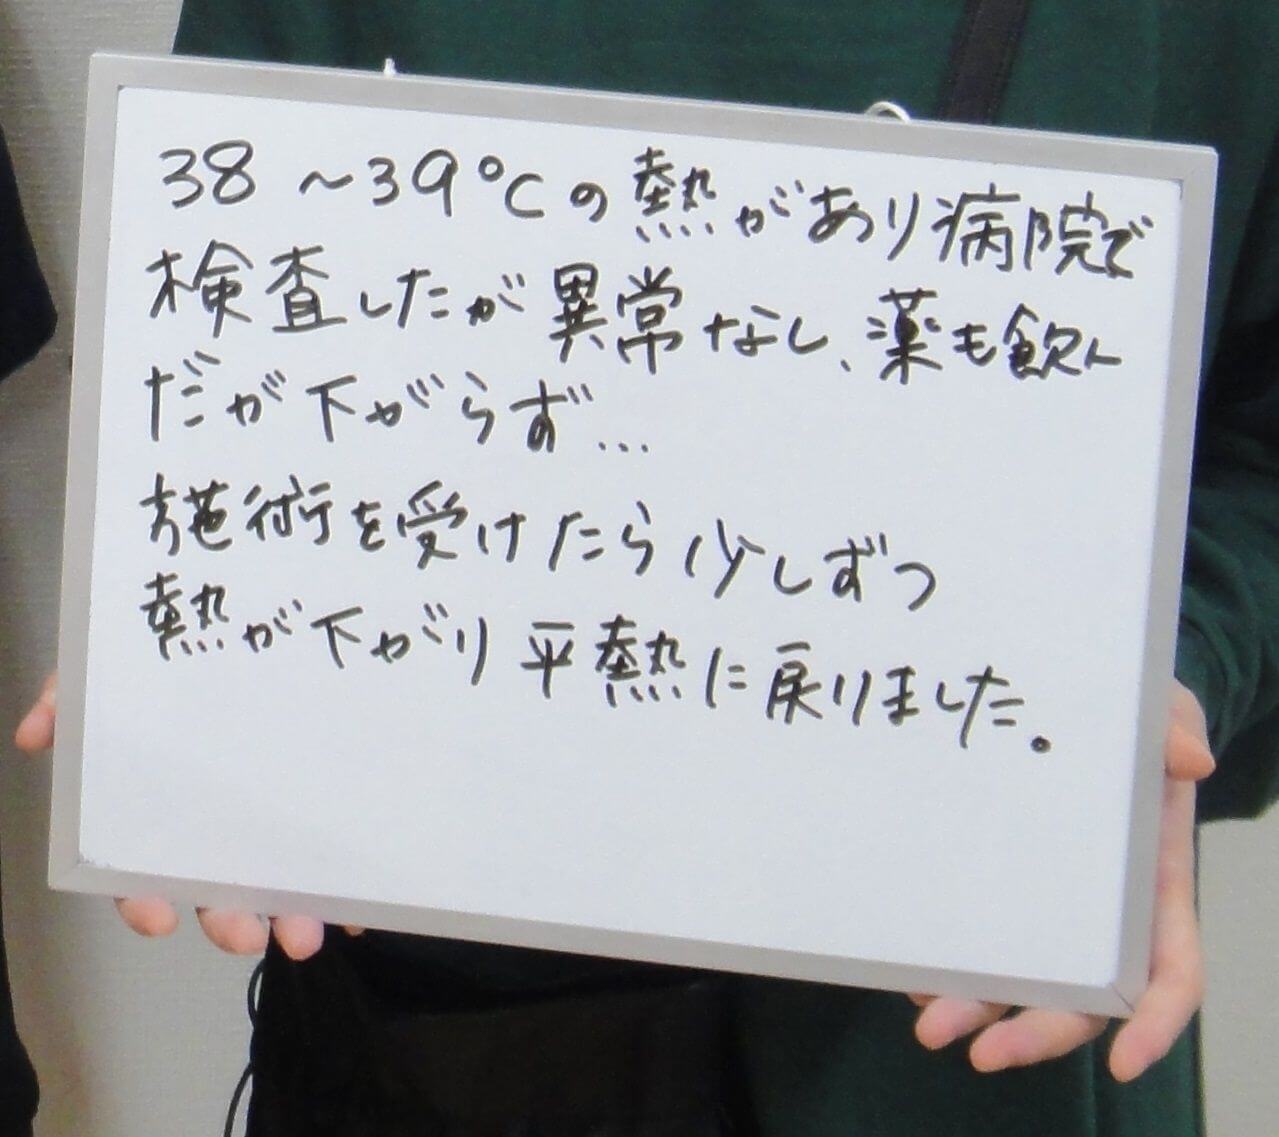 38～39℃の熱があり病院で
検査したが異常なし、薬も飲ん
だが下がらず…
施術を受けたら少しずつ
熱が下がり平熱に戻りました。